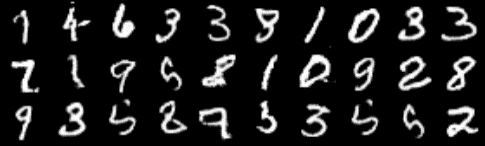 1 4 6 3 3 8 1 0 3 3
7 1 9 5 8 1 0 9 2 8
9 3 5 8 7 3 3 5 5 2